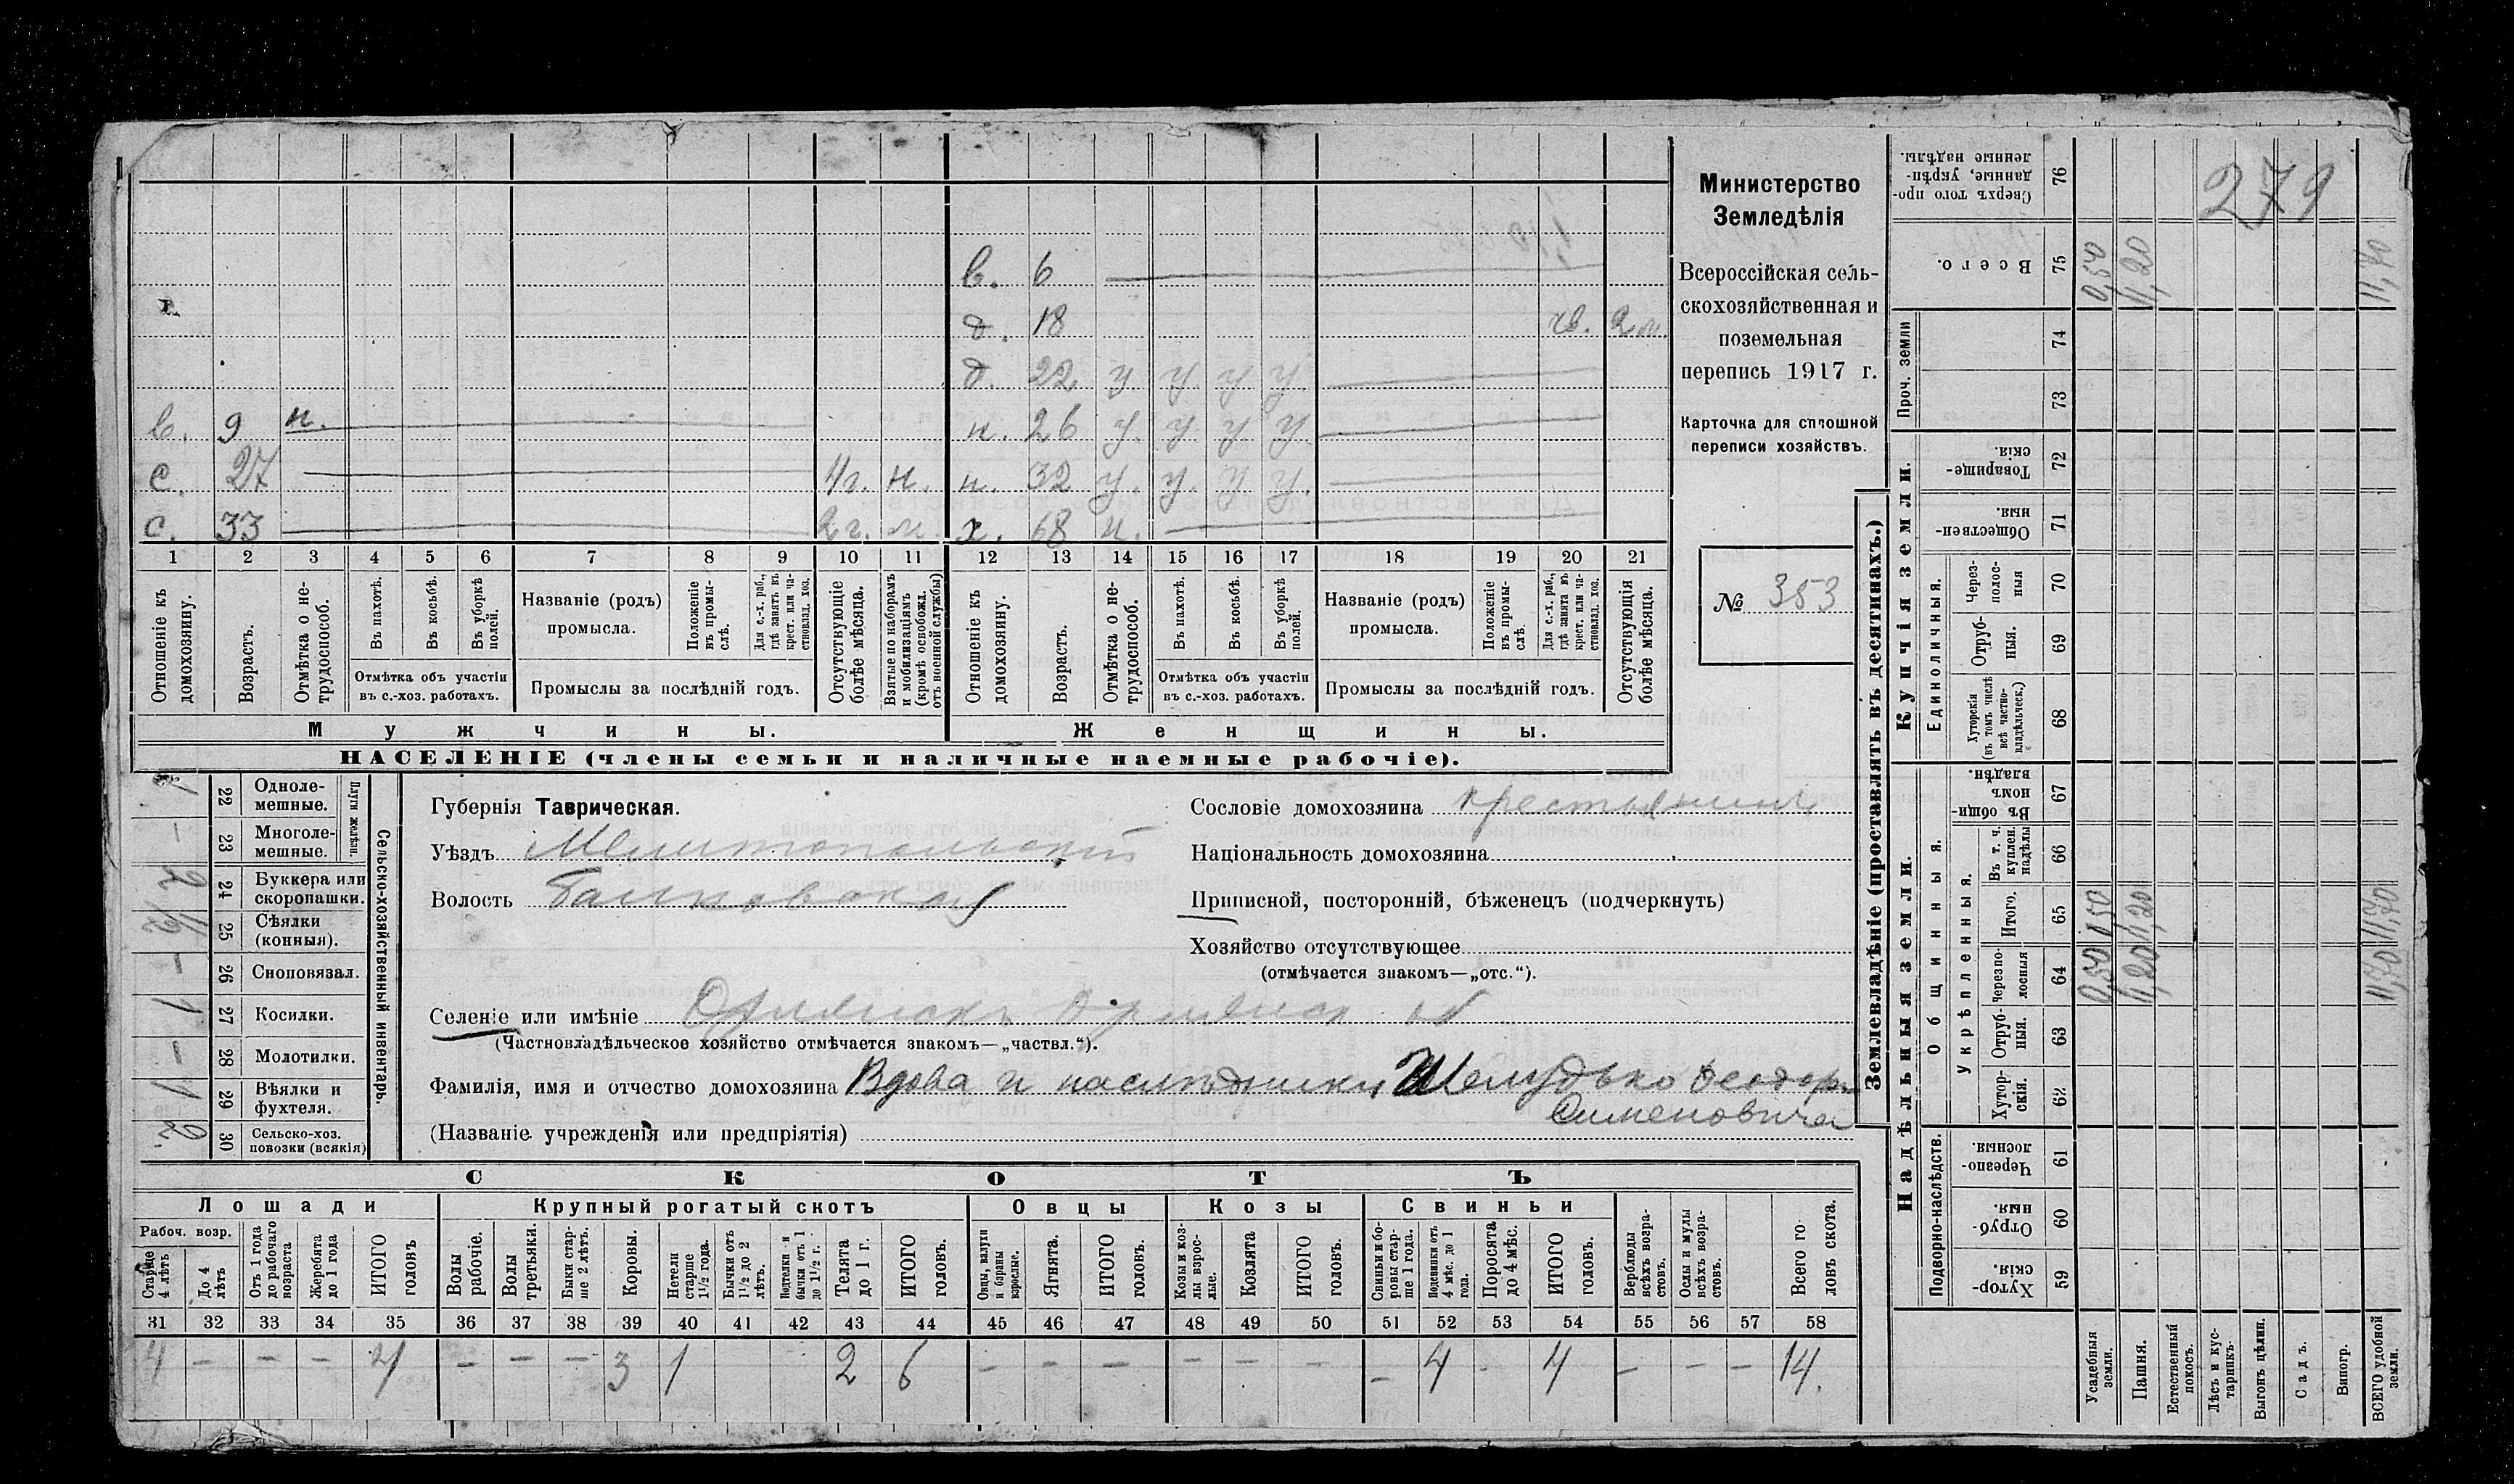 279
Министерство
Земледѣлія
Всероссійская сель-
скохозяйственная и
поземельная
перепись 1917 г.
Карточка для сплошной
переписи хозяйствъ.
№ 353
в. 6
д. 18 чв. 2 м.
д. 22 у у у у
в. 9 н. н. 26 у. у у у
с. 27 4 г. н. н. 32 у. у. у у.
с. 33 2 г. м. х. 68 н.
1 2 3 4 5 6 7 8 9 10 11 12 13 14 15 16 17 18 19 20 21
Отношеніе къ домохозяину.
Возрастъ.
Отмѣтка о не-трудоспособ.
Въ пахотѣ.
Въ косьбѣ.
Въ уборкѣ полей.
Отмѣтка объ участіи въ с.-хоз. работахъ.
Названіе (родъ) промысла.
Положеніе въ промы-слѣ.
Для с.-х. раб., гдѣ занятъ въ крест. или ча-стновлад. хоз.
Промыслы за послѣдній годъ.
Отсутствующіе болѣе мѣсяца.
Взятые по наборамъ и мобилизаціямъ (кромѣ освобожл. отъ военной службы)
Отношеніе къ домохозяину.
Возрастъ.
Отмѣтка о не-трудоспособ.
Въ пахотѣ.
Въ косьбѣ.
Въ уборкѣ полей.
Отмѣтка объ участіи въ с.-хоз. работахъ.
Названіе (родъ) промысла.
Положеніе въ промы-слѣ.
Для с.-х. раб., гдѣ занята въ крест. или ча-стновлад. хоз.
Промыслы за послѣдній годъ.
Отсутствующія болѣе мѣсяца.
Мужчины. Женщины.
НАСЕЛЕНІЕ (члены семьи и наличные наемные рабочіе).
Сельско-хозяйственный инвентарь.
Плуги желѣзн.
1 22 Одноле-мешные.
– 23 Многоле-мешные.
2 24 Буккера или скоропашки.
1/2 25 Сѣялки (конныя).
– 26 Сноповязал.
1 27 Косилки.
– 28 Молотилки.
1 29 Вѣялки и фухтеля.
2 30 Сельско-хоз. повозки (всякія)
Губернія Таврическая.
Уѣздъ Мелитопольскій
Волость
Сословіе домохозяина крестьянинъ
Національность домохозяина
Приписной, посторонній, бѣженецъ (подчеркнуть)
Хозяйство отсутствующее
(отмѣчается знакомъ—„отс.“).
Селеніе или имѣніе Орлянскъ
(Частновладѣльческое хозяйство отмѣчается знакомъ—„частвл.“).
Фамилія, имя и отчество домохозяина Вдова и наслѣдники Шелудько Феодор.
Сименовича
(Названіе учрежденія или предпріятія)
СКОТЪ
Лошади Крупный рогатый скотъ Овцы Козы Свиньи
Рабоч. возр.
Старше 4 лѣтъ
До 4 лѣтъ
Отъ 1 года до рабочаго возраста
Жеребята до 1 года
ИТОГО головъ
Волы рабочіе.
Волы третьяки.
Быки стар-ше 2 лѣтъ.
Коровы.
Нетели старше 1½ года.
Бычки отъ 1½ до 2 лѣтъ.
Подтелки и бычки отъ 1 до 1½ г.
Телята до 1 г.
ИТОГО головъ.
Овцы, валухи и бараны взрослые.
Ягнята.
ИТОГО головъ.
Козы и коз-лы взрос-лые.
Козлята
ИТОГО головъ.
Свиньи и бо-ровы стар-ше 1 года.
Подсвинки отъ 4 мѣс. до 1 года.
Поросята до 4 мѣс.
ИТОГО головъ.
Верблюды всѣхъ возра-стовъ.
Ослы и мулы всѣхъ возра-стовъ.
Всего го-ловъ скота.
31 32 33 34 35 36 37 38 39 40 41 42 43 44 45 46 47 48 49 50 51 52 53 54 55 56 57 58
4 – – – 4 – – – 3 1 2 6 – – – – – – – 4 – 4 – – – 14.
Землевладѣніе (проставлять въ десятинахъ.)
Купчія земли.
Надѣльныя земли.
Сверхъ того про-данные, укрѣп-ленные надѣлы. 76
Всего. 75 0,50 11,20 11,70
Проч. земли 74
73
Товарище-скія. 72
Обществен-ныя. 71
Единоличныя.
Через-полос-ныя 70
Отруб-ныя. 69
Хуторскія (въ томъ числѣ всѣ частно-владѣльческ.) 68
Общинныя.
Въ общи-номъ владѣн. 67
Укрѣпленныя.
Въ т. ч. куплен. надѣлы 66
Итого. 65 0,50 11,20 11,70
черезпо-лосныя 64 0,50 11,20 11,70
Отруб-ныя. 63
Хутор-скія. 62
Подворно-наслѣдств.
Черезпо-лосныя 61
Отруб-ныя. 60
Хутор-скія. 59
Усадебныя земли.
Пашня.
Естественный покосъ.
Лѣсъ и кус-тарникъ.
Выгонъ цѣлин.
Садъ.
Виногр.
ВСЕГО удобной земли.